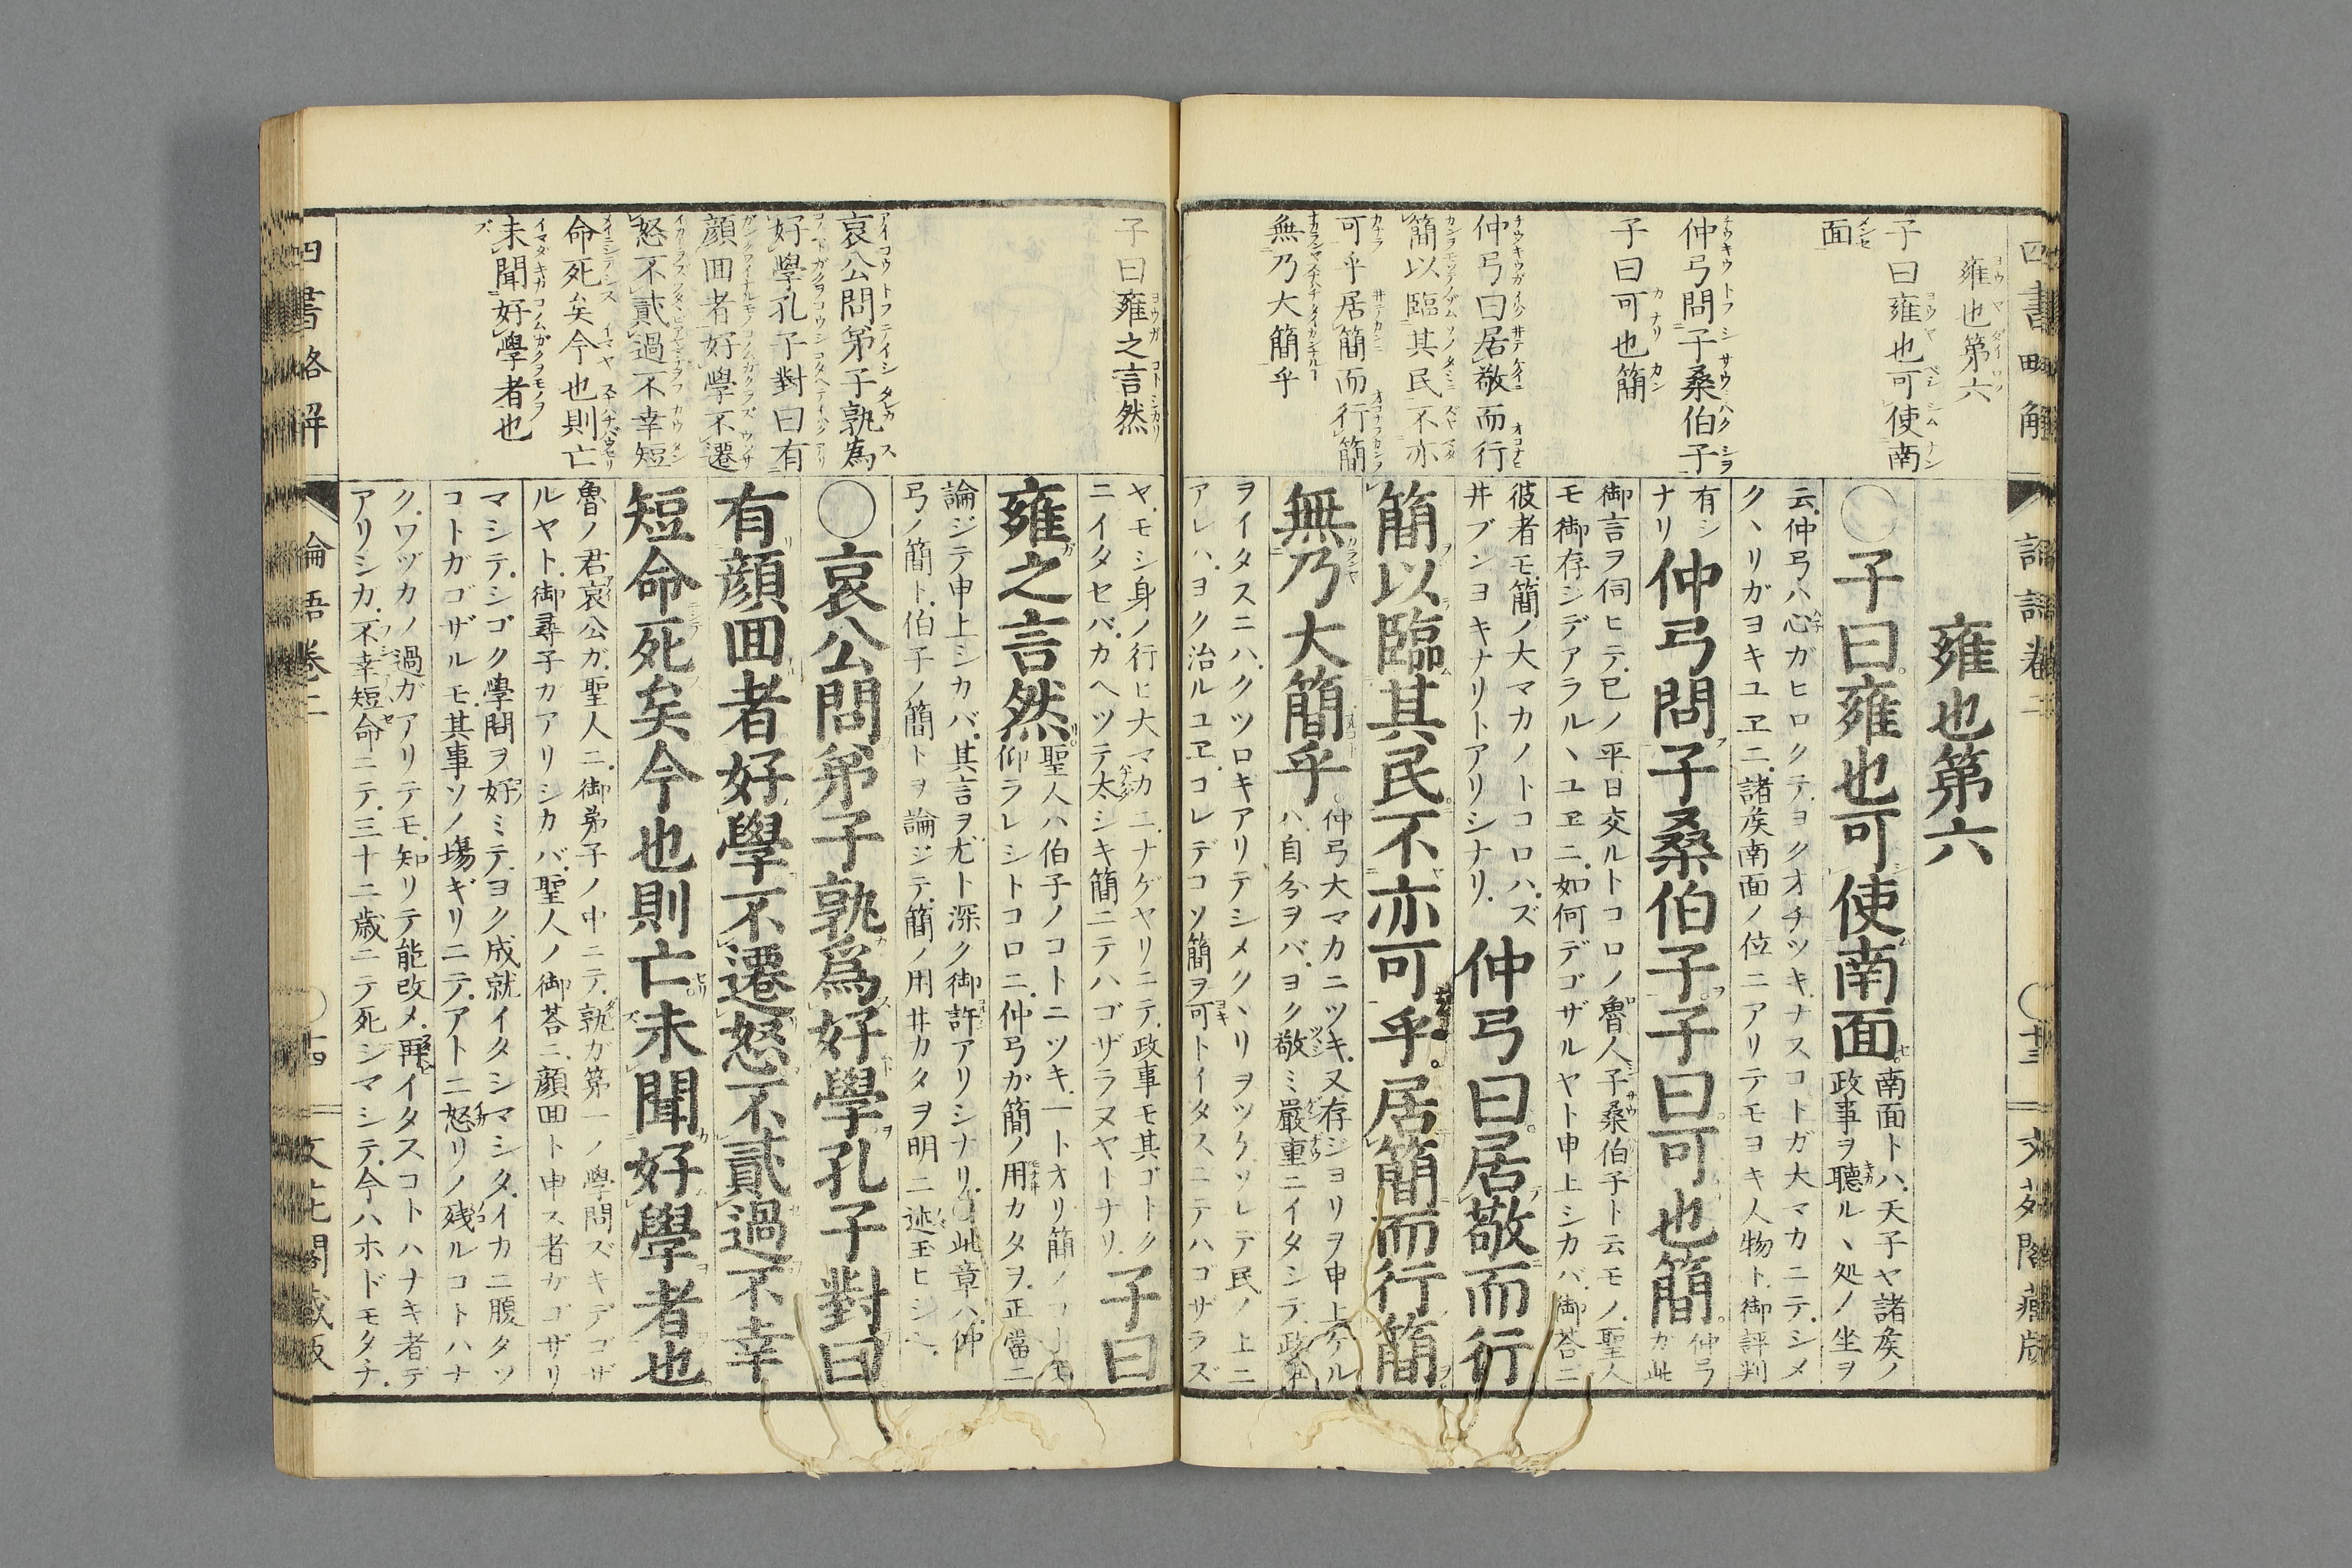 四書略解
論語卷二
十三
文苑閣藏版
雍也第六
子曰雍也可使南
面
仲弓問子桑伯子
子曰可也簡
仲弓曰居敬而行
簡以臨其民不亦
可乎居簡而行簡
無乃大簡乎
雍也第六
○子曰雍也可使南面
南面トハ天子ヤ諸矦ノ
政事ヲ聽ルヽ処ノ坐ヲ
云仲弓ハ心ガヒロクテヨクオチツキナスコトガ大マカニテシメ
クヽリガヨキユヱニ諸矦南面ノ位ニアリテモヨキ人物ト御評判
有シ
ナリ
仲弓問子桑伯子子曰可也簡
仲弓
ガ此
御言ヲ伺ヒテ已ノ平日交ルトコロノ魯人子桑伯子ト云モノ聖人
モ御存シデアラルヽユヱニ如何デゴザルヤト申上シカバ御荅ニ
彼者モ簡ノ大マカノトコロハズ
井ブンヨキナリトアリシナリ
仲弓曰居敬而行
簡以臨其民不亦可乎居簡而行簡
無乃大簡乎
仲弓大マカニツキ又存ジヨリヲ申上ケル
ハ自分ヲバヨク敬ミ嚴重ニイタシテ政事
ヲイタスニハクツロキアリテシメクヽリヲツケソレテ民ノ上ニ
アレハヨク治ルユヱコレデコソ簡ヲ可トイタスニテハゴザラズ
子曰雍之言然
哀公問弟子孰為
好學孔子對曰有
顔囬者好學不遷
怒不貳過不幸短
命死矣今也則亡
未聞好學者也
ヤモシ身ノ行ヒ大マカニナゲヤリニテ政事モ其ゴトク
ニイタセバカヘツテ太シキ簡ニテハゴザラヌヤトナリ
子曰
雍之言然
聖人ハ伯子ノコトニツキ一トオリ簡ノコトヲ
仰ラレシトコロニ仲弓が簡ノ用カタヲ正當ニ
論ジテ申上シカバ其言ヲ尤ト深ク御許アリシナリ○此章ハ仲
弓ノ簡ト伯子ノ簡トヲ論ジテ簡ノ用井カタヲ明ニ述玉ヒシヘ
○哀公問弟子孰爲好學孔子對曰
有顔囬者好學不遷怒不貳過不幸
短命死矣今也則亡未聞好學者也
魯ノ君哀公ガ聖人ニ御弟子ノ中ニテ孰ガ第一ノ學問ズキデゴザ
ルヤト御尋子ガアリシカバ聖人ノ御荅ニ顔囬ト申ス者ガゴザリ
マシテシゴク學問ヲ好ミテヨク成就イタシマシタイカニ腹タツ
コトガゴザルモ其事ソノ塲ギリニテアトニ怒リノ残ルコトハナ
クワヅカノ過ガアリテモ知リテ能改メ再イタスコトハナキ者デ
アリシカ不幸短命ニテ三十二歳ニテ死シマシテ今ハホドモタチ
四書略解
論語卷二
十四
文苑閣藏版